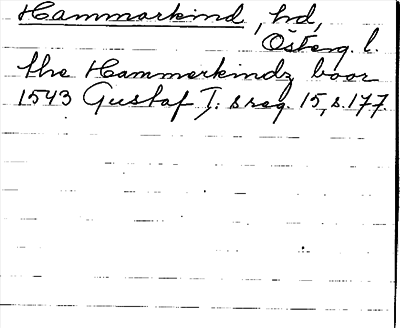 Hammarkind, hd,
Österg. l.
the Hammerkindz boar
1543 Gustaf I: s reg. 15, s. 177.